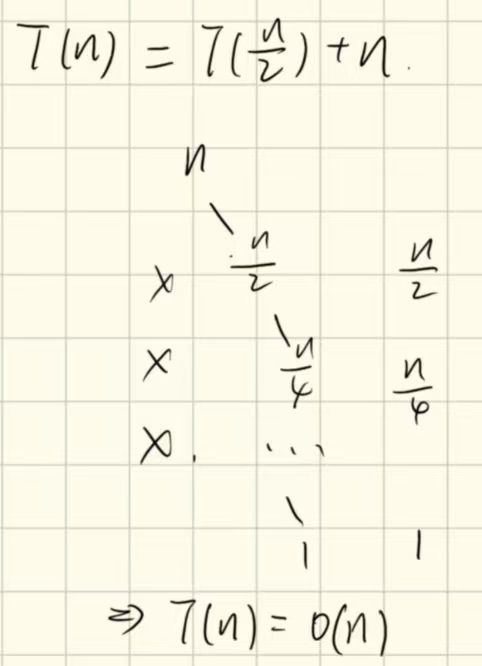 T(n) = T(n/2) + n.
n
\
x n/2 n/2
\
x n/4 n/4
x. ...
\
1 1
⇒ T(n) = O(n)